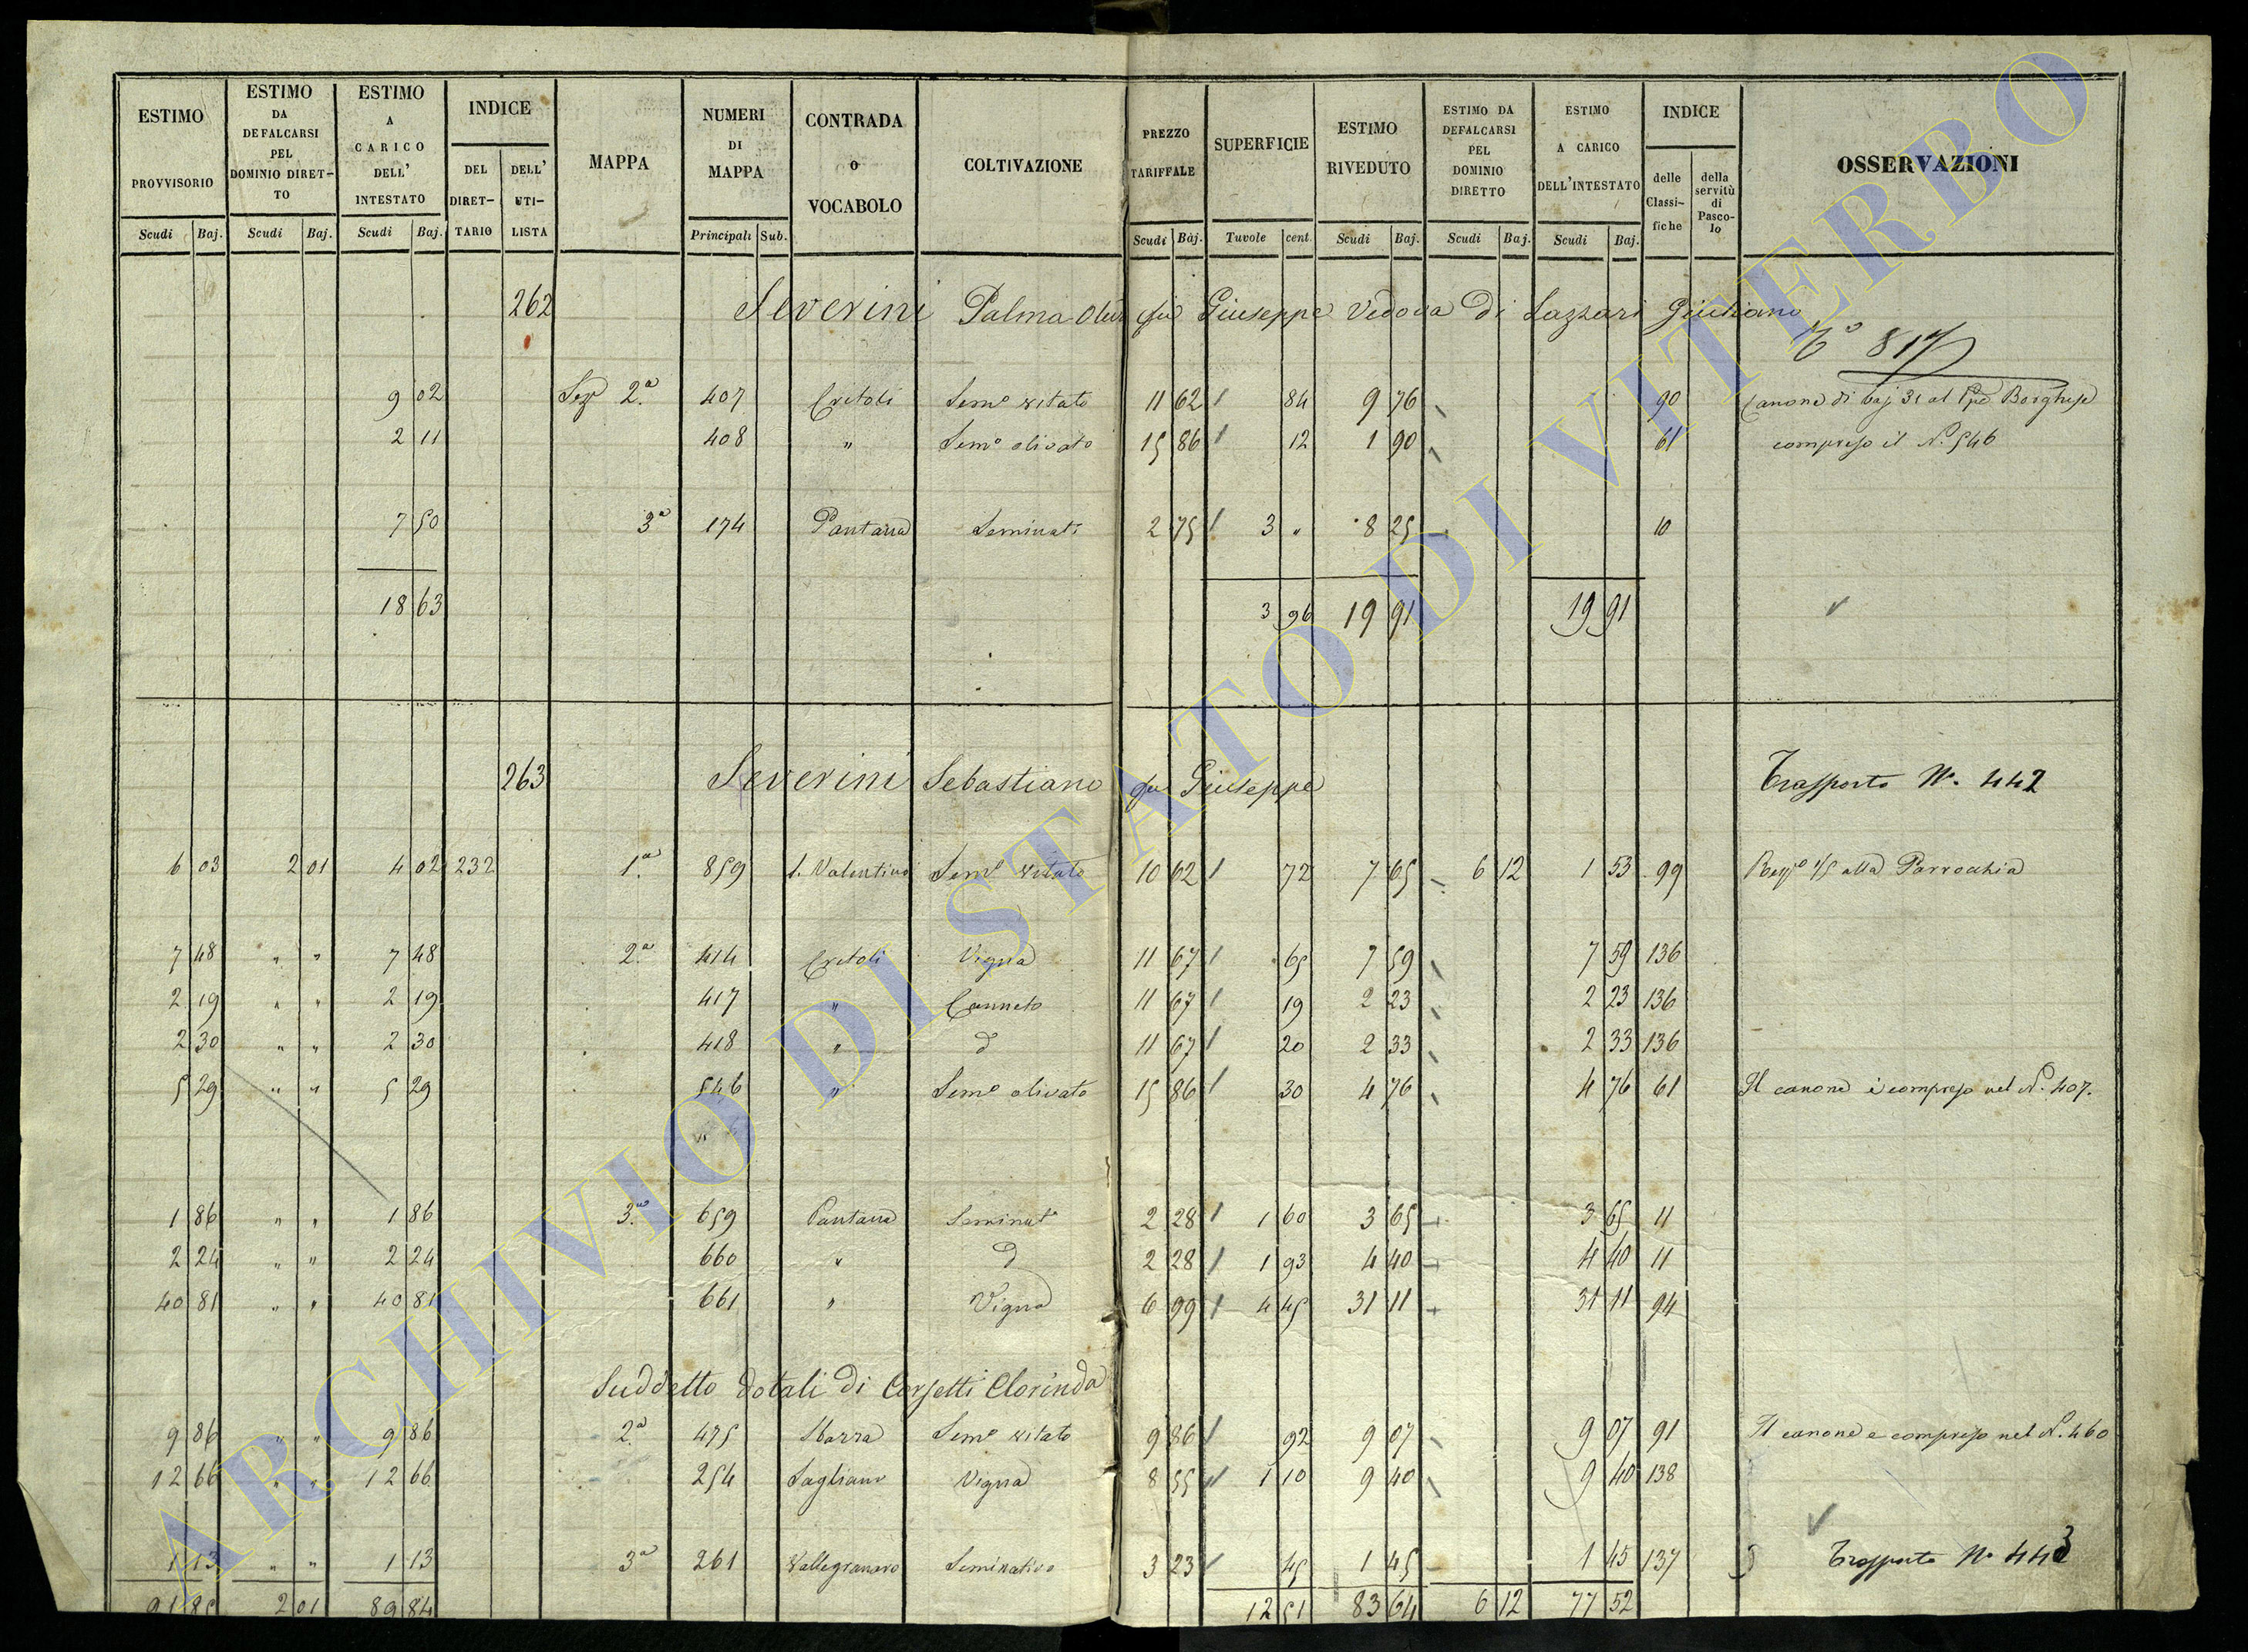 ESTIMO PROVVISORIO Scudi Baj.
ESTIMO DA DEFALCARSI PEL DOMINIO DIRET- TO Scudi Baj.
ESTIMO A CARICO DELL' INTESTATO Scudi Baj.
INDICE DEL DIRET- TARIO DELL' UTI- LISTA
MAPPA
NUMERI DI MAPPA Principali Sub.
CONTRADA o VOCABOLO
COLTIVAZIONE
PREZZO TARIFFALE Scudi Baj.
SUPERFICIE Tavole cent.
ESTIMO RIVEDUTO Scudi Baj.
ESTIMO DA DEFALCARSI PEL DOMINIO DIRETTO Scudi Baj.
ESTIMO A CARICO DELL'INTESTATO Scudi Baj.
INDICE delle Classi- fiche della servitù di Pasco- lo
OSSERVAZIONI
262 Severini Palma fu Giuseppe Vedova di Lazzari Giuliano
N.° 817
9 02 Sez.e 2.a 407 Critoli Sem.o vitato 11 62 84 9 76 90 Canone di baj 31 al Borghese
2 11 408 " Sem.o olivato 15 86 12 1 90 61 compreso il N. 546
7 50 3.a 174 Pantana Seminat.o 2 75 3 " 8 25 10
18 63 3 96 19 91 19 91
263 Severini Sebastiano fu Giuseppe Trasporto N. 442
6 03 2 01 4 02 232 1.a 859 S. Valentino Sem.o vitato 10 62 72 7 65 6 12 1 53 99 1/5 alla Parrochia
7 48 " " 7 48 2.a 414 Critoli Vigna 11 67 65 7 59 7 59 136
2 19 " " 2 19 417 " Canneto 11 67 19 2 23 2 23 136
2 30 " " 2 30 418 " d 11 67 20 2 33 2 33 136
5 29 " " 5 29 546 " Sem.o olivato 15 86 30 4 76 4 76 61 Il canone è compreso nel N. 407.
1 86 " " 1 86 3.a 659 Pantana Seminat.o 2 28 1 60 3 65 3 65 11
2 24 " " 2 24 660 " d 2 28 1 93 4 40 4 40 11
40 81 " " 40 81 661 " Vigna 6 99 4 45 31 11 31 11 94
Suddetto dotali di Corsetti Clorinda
9 86 " " 9 86 2.a 475 Sbarra Sem.o vitato 9 86 92 9 07 9 07 91 Il canone e compreso nel N. 460
12 66 " " 12 66 254 Sagliano Vigna 8 55 1 10 9 40 9 40 138
1 13 " " 1 13 3.a 261 Vallegranaro Seminativo 3 23 45 1 45 1 45 137 Trasporto N. 443
91 85 2 01 89 84 12 51 83 64 6 12 77 52
ARCHIVIO DI STATO DI VITERBO